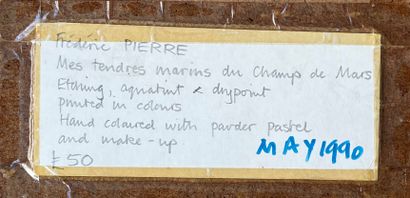 Frédéric PIERRE
Mes tendres marins du Champs de Mars
Etching, aquatint & drypoint
printed in colours
Hand coloured with powder pastel
and make-up.
£50
MAY 1990